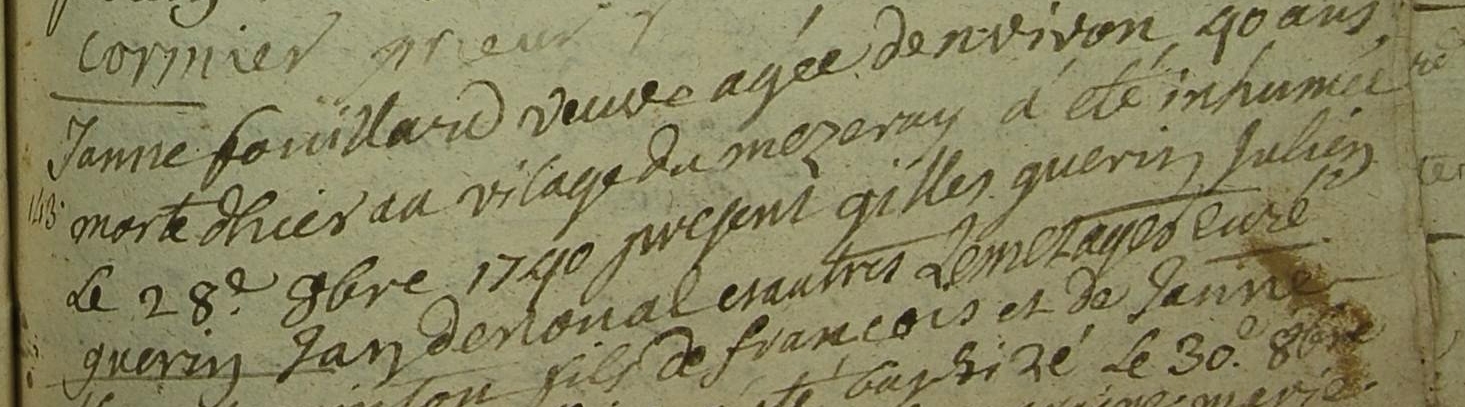 Cormier prieur
Janne fouillard veuve agée denviron 40 ans
morte dhier au vilage du mezeray a été inhumée
143
Le 28e 8bre 1740 present gilles guerin Julien
guerin Jan denoual et autres Lemetayer curé
fils de françois et de Janne
baptizé Le 30e 8bre